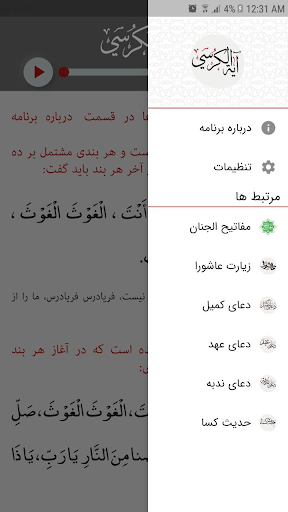 4% 12:31 AM
آیة الکرسي
درباره برنامه
تنظیمات
مرتبط ها
مفاتیح الجنان
زیارت عاشورا
دعای کمیل
دعای عهد
دعای ندبه
حدیث کسا
الکرسي
ها در قسمت درباره برنامه
ست و هر بندی مشتمل بر ده
آخر هر بند باید گفت:
أَنْتَ ، الْغَوْثَ الْغَوْثَ،
نیست، فریادرس فریادرس، ما را از
ده است که در آغاز هر بند
ى:
تَ، الْغَوْثَ الْغَوْثَ، صَلِّ
صْنا مِنَ النَّارِ یَا رَبِّ، یَا ذَا